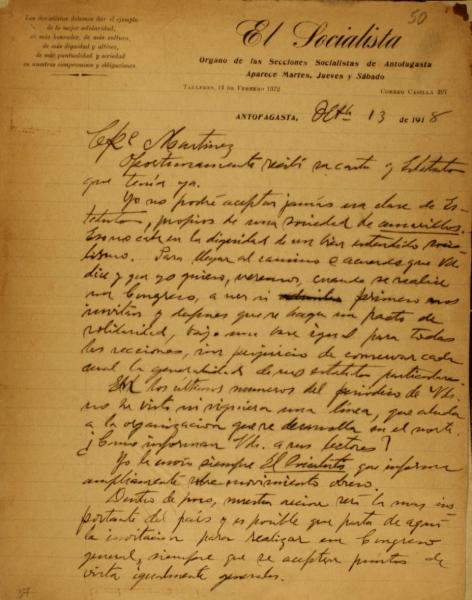 Los Socialistas debemos dar el ejemplo
de la mejor solidaridad,
de más honradez, de más cultura,
de más dignidad y altivez,
de más puntualidad y seriedad
en nuestros compromisos y obligaciones.
50
El Socialista
Organo de las Secciones Socialistas de Antofagasta
Aparece Martes, Jueves y Sábado
TALLERES, 14 DE FEBRERO
CORREO CASILLA
ANTOFAGASTA, Octb 13 de 1918
Martinez
Oportunamente recibí su carta y Estatuto
que tenía ya.
Yo no podré aceptar jamás esa clase de Es-
tatutos, propios de una sociedad de amarillos.
en la dignidad de un bien entendido socia-
lismo. Para llegar al camino
dice y que yo quiero, veremos, cuando se realice
un Congreso, a ver si primero nos
invitan y despues que se haga un pacto de
solidaridad, bajo una base igual para todas
las secciones, sin perjuicio de conservar cada
cual la generalidad de sus estatutos particulares.
En los últimos numeros del periodico de Uds.
no he visto ni siquiera una linea, que aluda
a la organizacion que se desarrolla en el norte.
¿Como informan Uds. a sus lectores?
Yo le envío siempre El Socialista que informa
ampliamente movimiento obrero.
Dentro de poco, nuestra accion será la mas im-
portante del país y es posible que parta de aquí
la invitacion para realizar un Congreso
general, siempre que se acepten puntos de
vista igualmente generales.